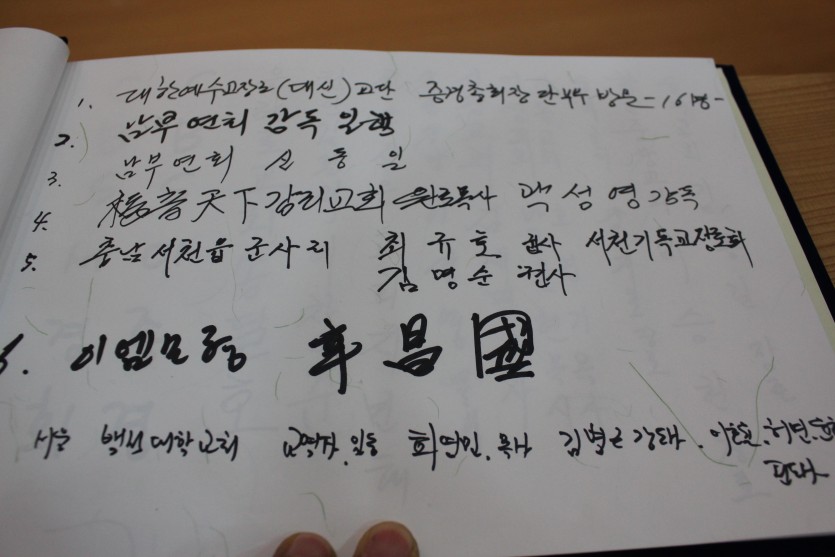 1. 대한예수교장로(대신)교단 증경총회장단 부부 방문 -16명-
2. 남부연회 감독 일행
3. 남부연회 신동일
4. 福音天下감리교회 원로목사 곽성영감독
5. 충남 서천읍 군사리 최규호 집사 서천기독교장로회
김명순 권사
6. 이엠모형 昌國
서울 백석대학교회 교역자.일동 목사